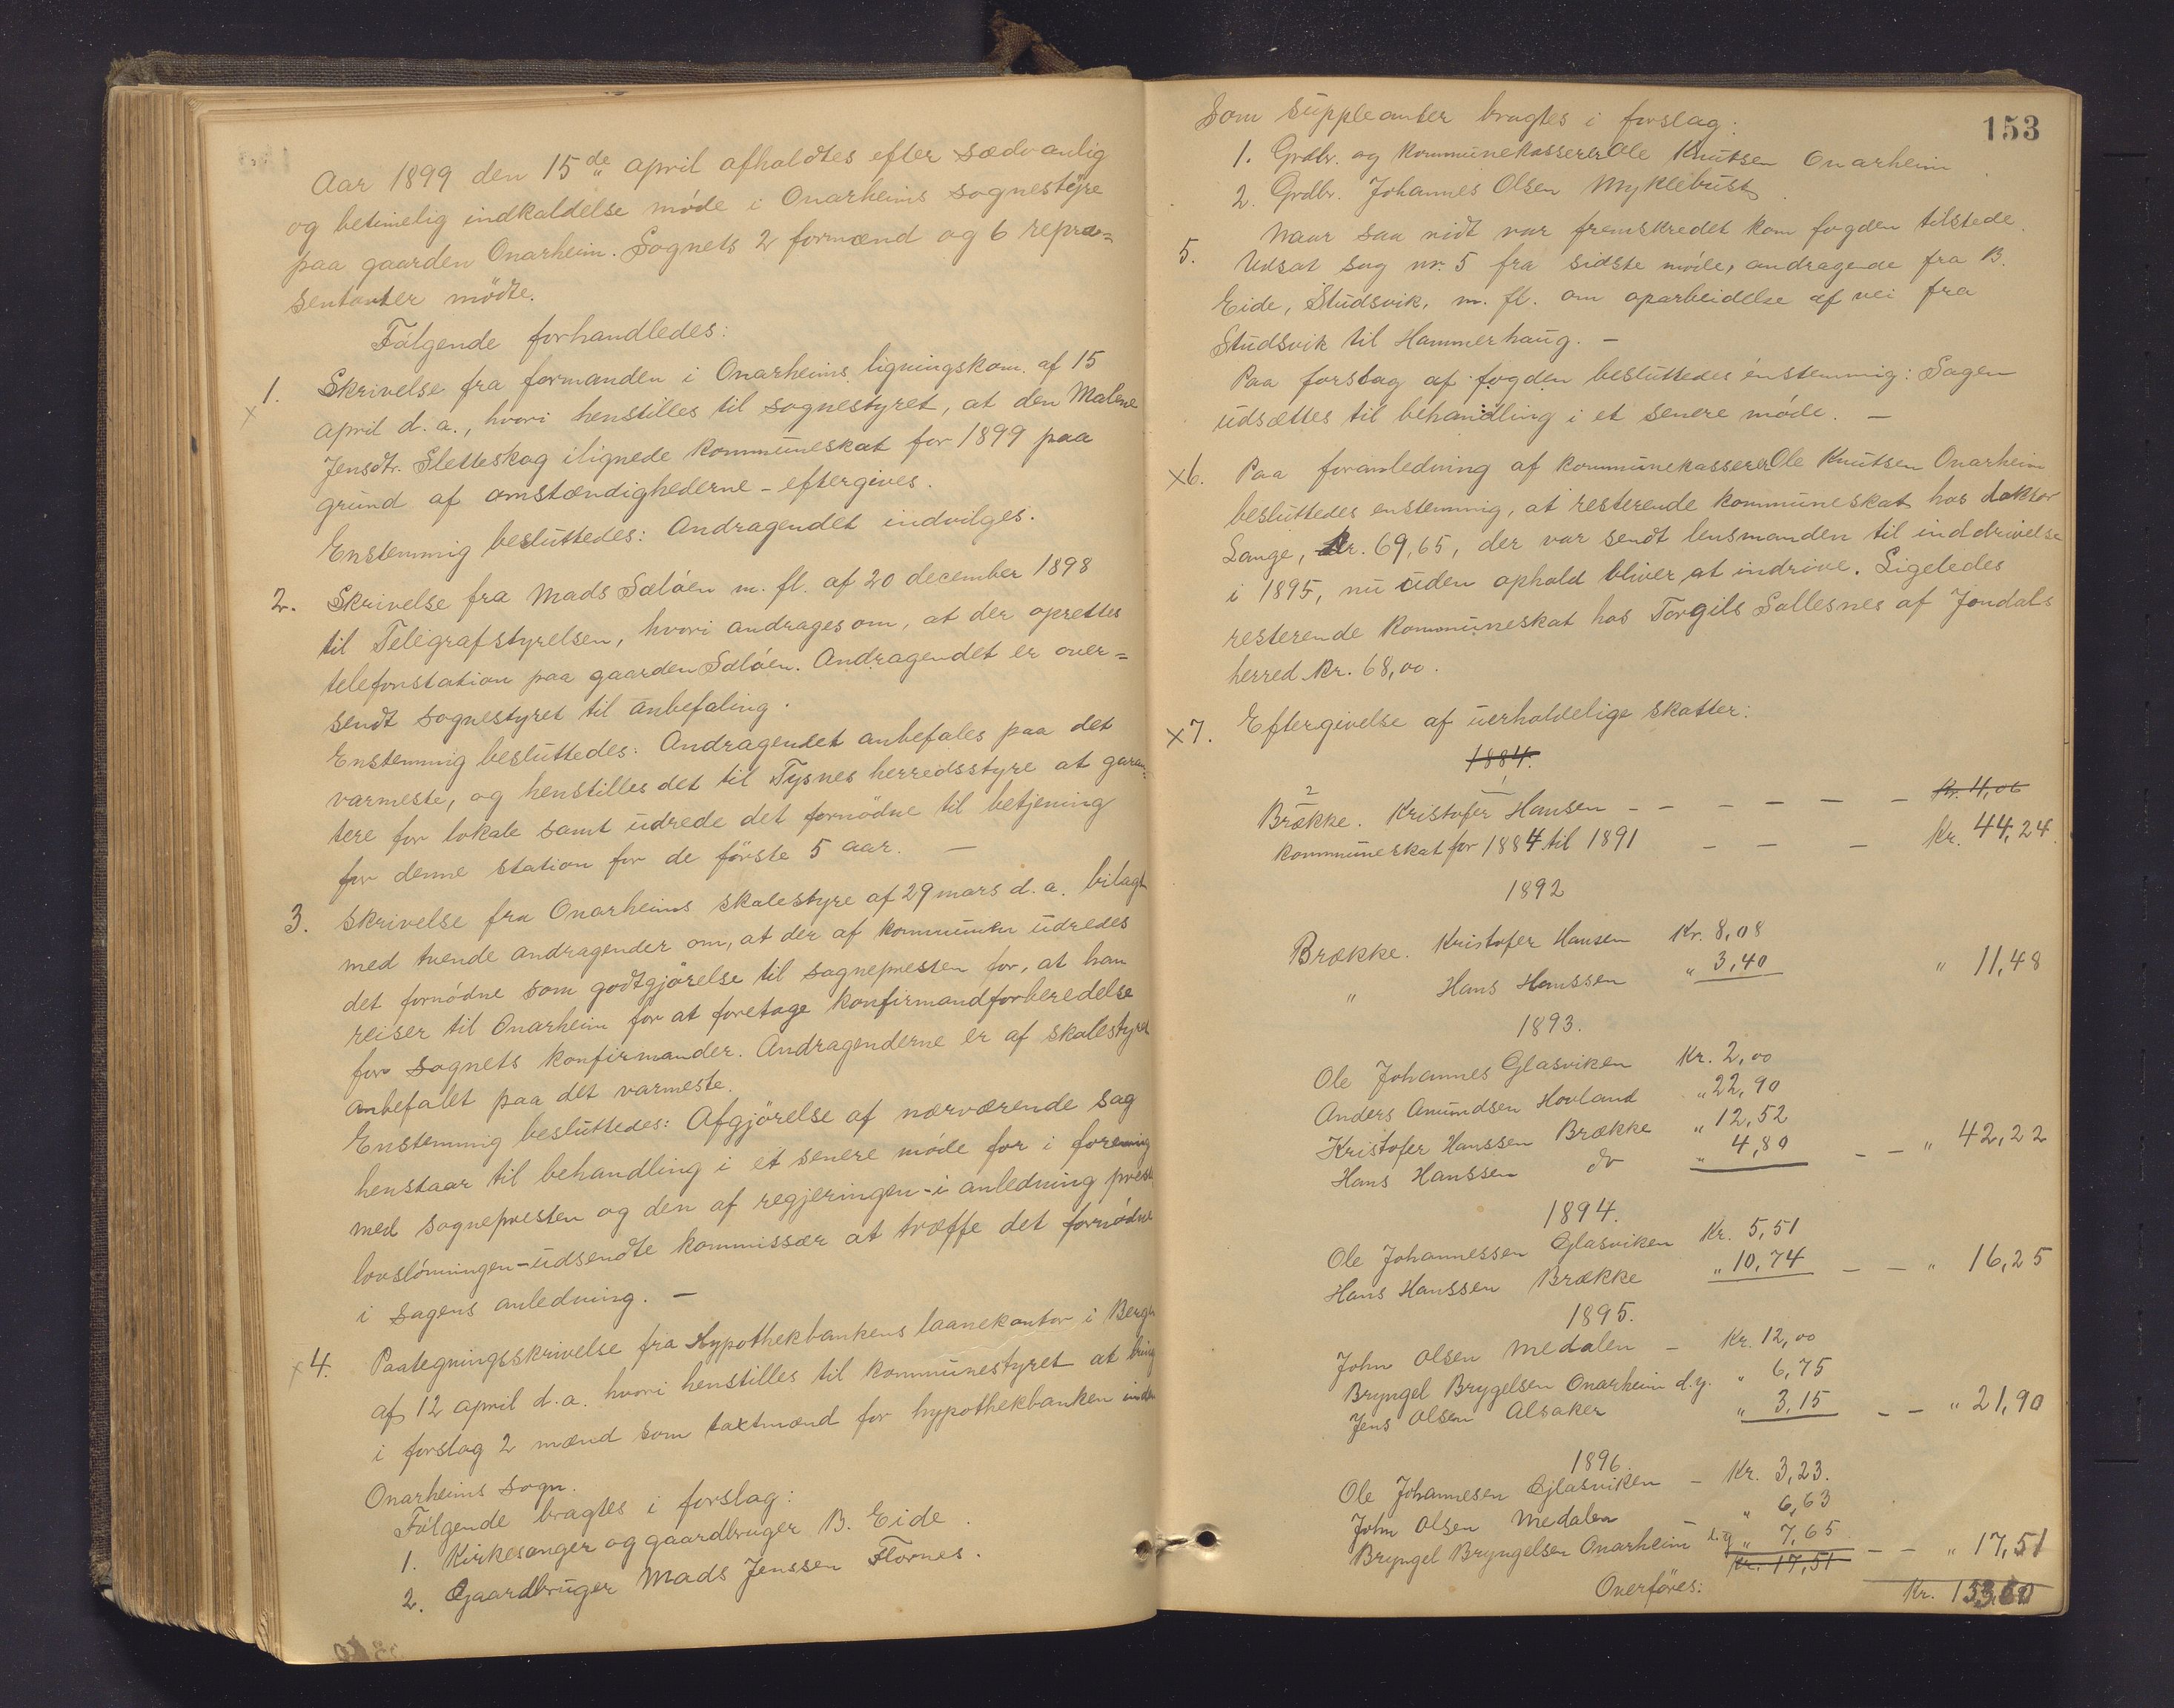 Aar 1899 den 15de april afholdtes efter sædvanlig
og betimelig indkaldelse møde i Onarheims sognestyre
paa gaarden Onarheim. Sognets 2 formænd og 6 repræ=
sentanter mødte.
Følgende forhandledes:
x 1. Skrivelse fra formanden i Onarheims ligningskom. af 15
april d. a., hvori henstilles til sognestyret, at den Malene
Jensdtr. Sletteskog ilignede kommuneskat for 1899 paa
grund af omstændighederne - eftergives.
Enstemmig besluttedes: Andragendet indvilges.
2. Skrivelse fra Mads Sæløen m. fl. af 20 december 1898
til Telegrafstyrelsen, hvori andrages om, at der oprettes
telefonstation paa gaarden Sæløen. Andragendet er over=
sendt sognestyret til anbefaling.
Enstemmig besluttedes: Andragendet anbefales paa det
varmeste, og henstilles det til Tysnes herredsstyre at garan=
tere for lokale samt udrede det fornødne til betjening
for denne station for de første 5 aar. —
3. Skrivelse fra Onarheims skolestyre af 29 mars d. a. bilagt
med tvende andragender om, at der af kommunen udredes
det fornødne som godtgjørelse til sognepresten for, at han
reiser til Onarheim for at foretage konfirmandforberedelse
for sognets konfirmander. Andragenderne er af skolestyret
anbefalet paa det varmeste.
Enstemmig besluttedes: Afgjørelse af nærværende sag
henstaar til behandling i et senere møde for i forening
med sognepresten og den af regjeringen - i anledning preste
lovslønningen - udsendte kommissær at træffe det fornødne
i sagens anledning. —
x 4. Paategningsskrivelse fra Hypothekbankens laanekontor i Bergen
af 12 april d. a. hvori henstilles til kommunestyret at bringe
i forslag 2 mænd som taxtmænd for hypothekbanken inden
Onarheims sogn.
Følgende bragtes i forslag:
1. Kirkesanger og gaardbruger B. Eide.
2. Gaardbruger Mads Jenssen Flornes.
153
Som suppleanter bragtes i forslag:
1. Grdbr. og kommunekasserer Ole Knutsen Onarheim
2. Grdbr. Johannes Olsen Myklebust
Naar saa vidt var fremskredet kom fogden tilstede.
5. Udsat sag nr. 5 fra sidste møde, andragende fra B.
Eide, Studsvik, m. fl. om oparbeidelse af vei fra
Studsvik til Hammerhaug. —
Paa forslag af fogden besluttedes enstemmig: Sagen
udsættes til behandling i et senere møde. —
x 6. Paa foranledning af kommunekasserer Ole Knutsen Onarheim
besluttedes enstemmig, at resterende kommuneskat hos doktor
Lange, kr. 69,65, der var sendt lensmanden til inddrivelse
i 1895, nu uden ophold bliver at indrive. Ligeledes
resterende kommuneskat hos Torgils Sallesnes af Jondals
herred kr. 68,00.
x 7. Eftergivelse af uerholdelige skatter:
1884.
Brække. Kristofer Hansen — — — — — — kr. 11,06
kommuneskat for 1884 til 1891 — — — kr. 44,24.
1892
Brække. Kristofer Hansen Kr. 8,08
" Hans Hanssen " 3,40 " 11,48
1893.
Ole Johannes Glasviken Kr. 2,00
Anders Amundsen Hovland " 22,90
Kristofer Hanssen Brække " 12,52
Hans Hanssen do " 4,80 — — " 42,22
1894.
Ole Johannessen Glasviken Kr. 5,51
Hans Hanssen Brække " 10,74 — — " 16,25
1895.
John Olsen Medalen — Kr. 12,00
Bryngel Brygelsen Onarheim d.y. " 6,75
Jens Olsen Alsaker " 3,15 — — " 21,90
1896.
Ole Johannesen Gjlasviken — Kr. 3,23.
John Olsen Medalen " 6,63
Bryngel Bryngelsen Onarheim d.y " 7,65 — — " 17,51
Kr. 17,51
Overføres: Kr. 153,60